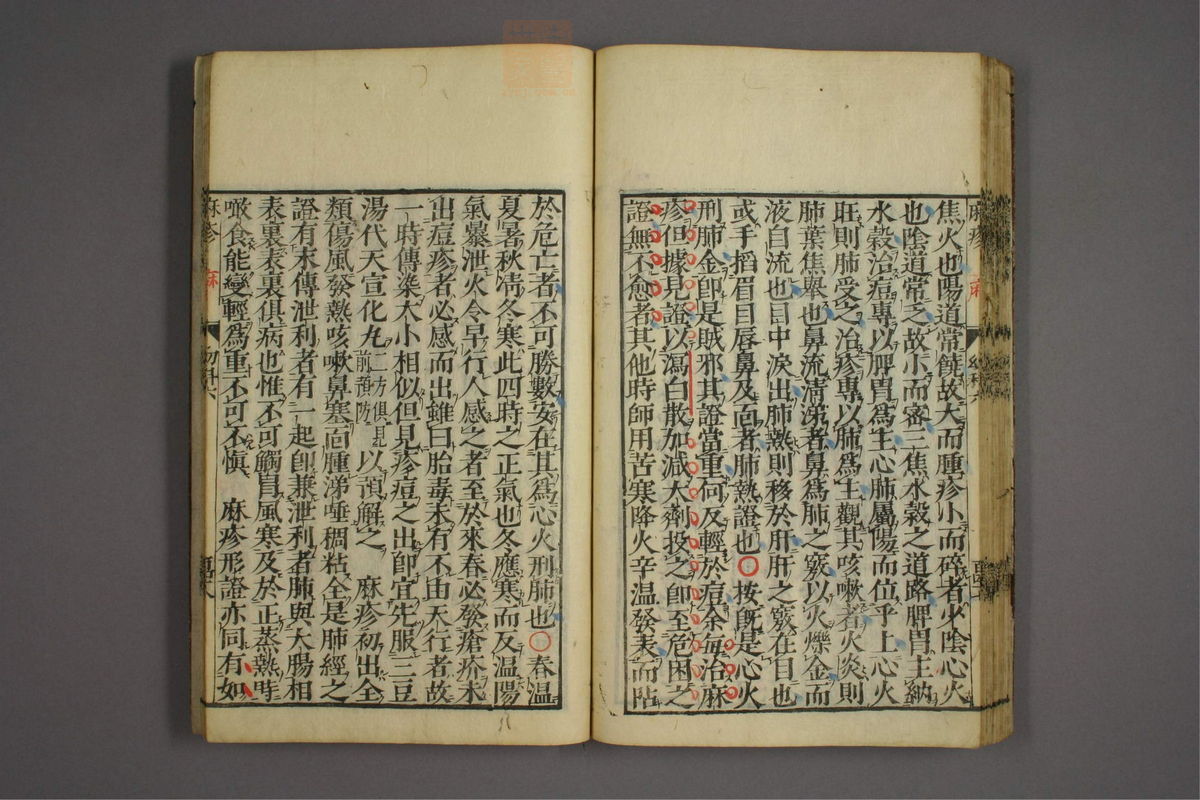 焦火也陽道常饒故大而腫疹小而碎者少陰心火
也陰道常乏故小而密三焦水穀之道路脾胃主納
水穀治痘專以脾胃為主心肺屬陽而位乎上心火
旺則肺受之治疹專以肺為主觀其咳嗽者火炎則
肺葉焦舉也鼻流清涕者鼻為肺之竅以火爍金而
液自流也目中淚出肺熱則移於肝肝之竅在目也
或手搯眉目唇鼻及面者肺熱證也○按既是心火
刑肺金卽是賊邪其證當重何反輕於痘余每治麻
疹但據見證以瀉白散加減大劑投之卽至危困之
證無不愈者其他時師用苦寒降火辛溫發表而陷
麻疹
麻
於危亡者不可勝數安在其爲心火刑肺也○春温
夏暑秋淸冬寒此四時之正氣也冬應寒而反温陽
氣暴泄火令早行人感之者至於來春必發瘡疥未
出痘疹者必感而出雖曰胎毒未有不由天行者故
一時傳染大小相似但見疹痘之出卽宜先服三豆
湯代天宣化丸二方俱見前預防以預解之 麻疹初出全
類傷風發熱咳嗽鼻塞面腫涕唾稠粘全是肺經之
證有未傳泄利者有一起卽兼泄利者肺與大腸相
表裏表裏俱病也惟不可觸冒風寒及於正蒸熱時
噉食能變輕爲重不可不愼 麻疹形證亦同有如
麻疹
麻
幼科六